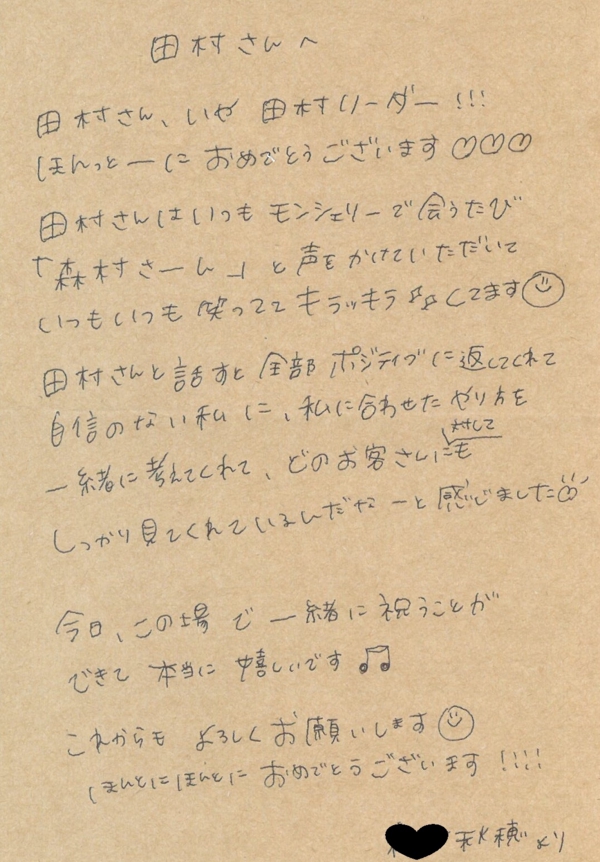 田村さんへ
田村さん、いや 田村リーダー!!!
ほんっとーに おめでとうございます♡♡♡
田村さんはいつも モンシェリーで会うたび
「森村さーん」と声をかけていただいて
いつもいつも 笑ってて キラッキラ♪♪してます☺
田村さんと話すと 全部 ポジティブに返してくれて
自信のない私に、私に合わせた やり方を
一緒に考えてくれて、どのお客さんに対しても
しっかり見てくれているんだなーと感じました
今日、この場で 一緒に祝うことが
できて 本当に 嬉しいです♫
これからも よろしくお願いします☺
ほんとにほんとに おめでとうございます!!!!
秋穂より